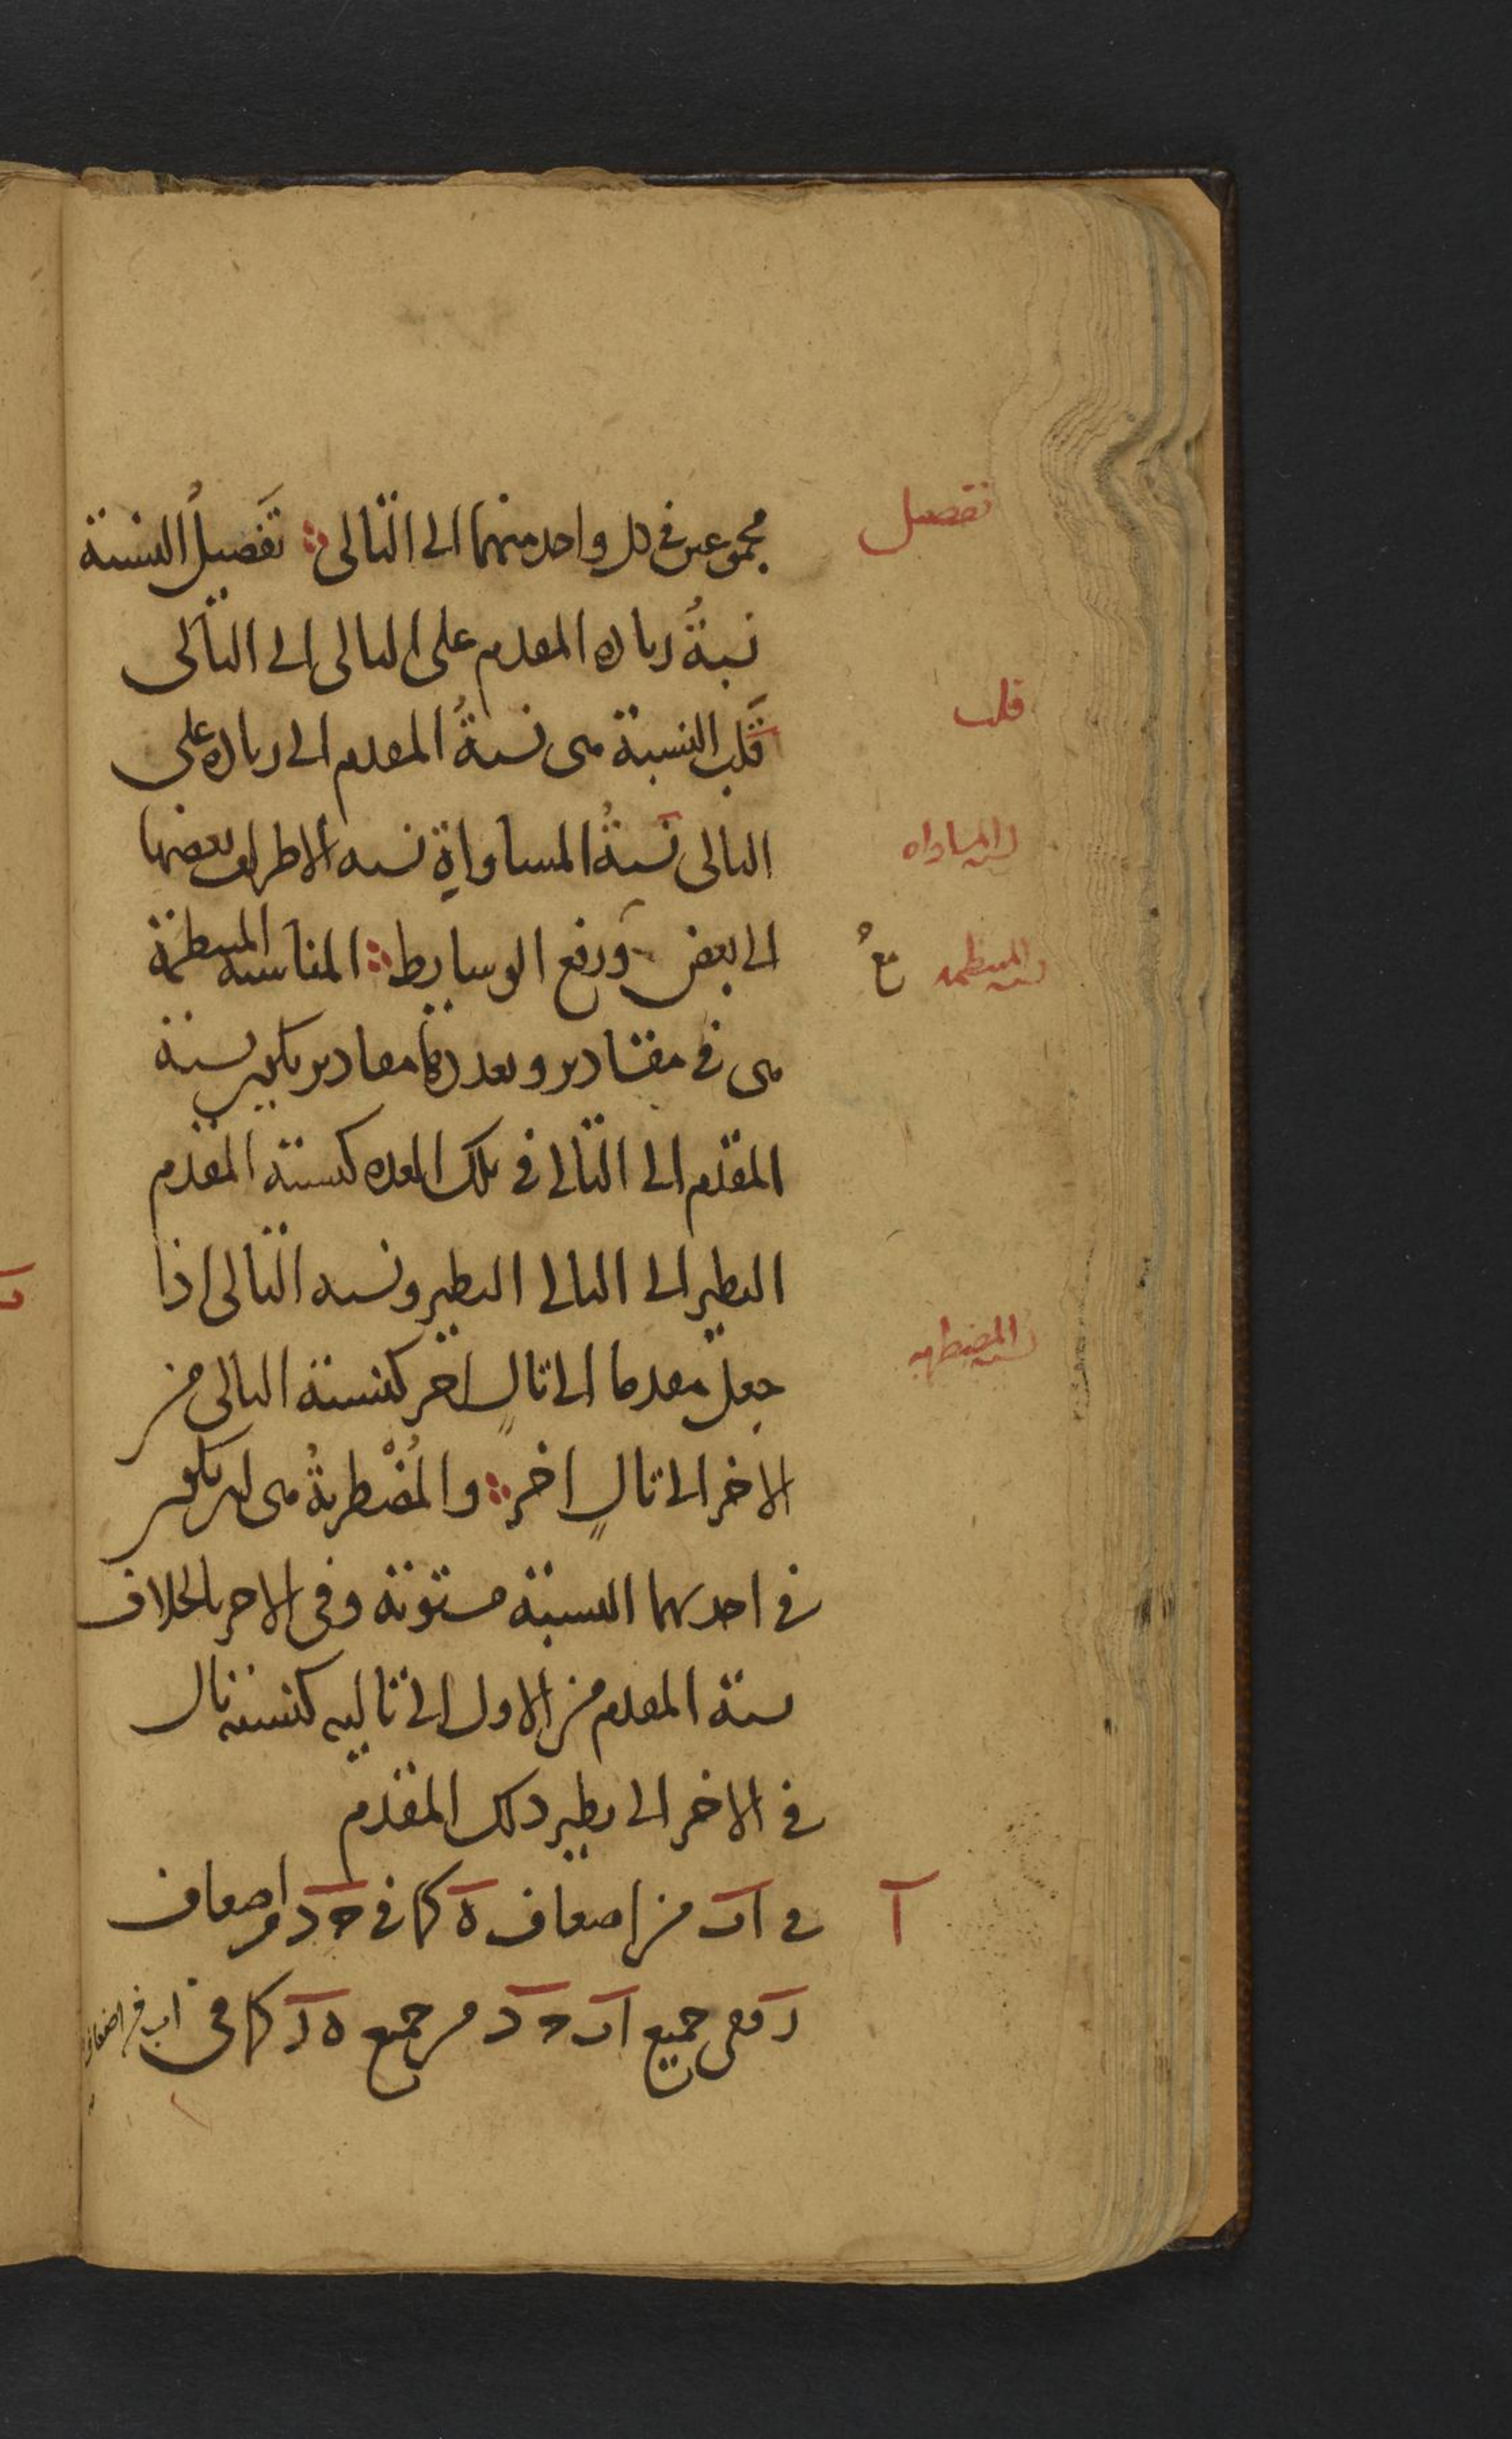 تفصيل
مجموعين في كل واحد منهما الى التالى ⁘ تَفصيلُ النسبة
نسبةُ زياده المقدم على التالى الى التالى
قلب
قَلب النسبة هى نسبةُ المقدم الى زياده على
نسبه المساواه
التالى نسبةُ المساواةِ نسبه الاطراف بعضها
نسبه المنتظمه
الى بعض ورفع الوسايط ⁘ المناسبه المنتظمة
هى في مقادير وبعددها مقادير يكون نسبة
المقدم الى التالى في تلك العده كنسبة المقدم
النظير الى التالى النظير ونسبه التالى اذا
نسبه المضطربه
جعل مقدما الى تالٍ اخر كنسبة التالى من
الاخر الى تالٍ اخر ⁘ والمُضْطربةُ هى ان يكون
في احديهما النسبة مستوية وفى الاخر بالخلاف
نسبة المقدم من الاول الى تاليه كنسبة تال
في الاخر الى نظير ذلك المقدم
آ
في اب من اضعاف ه كما في حد من اضعاف
ر ففى جميع اب حد من جميع ه ر كما فى اب من اضعاف